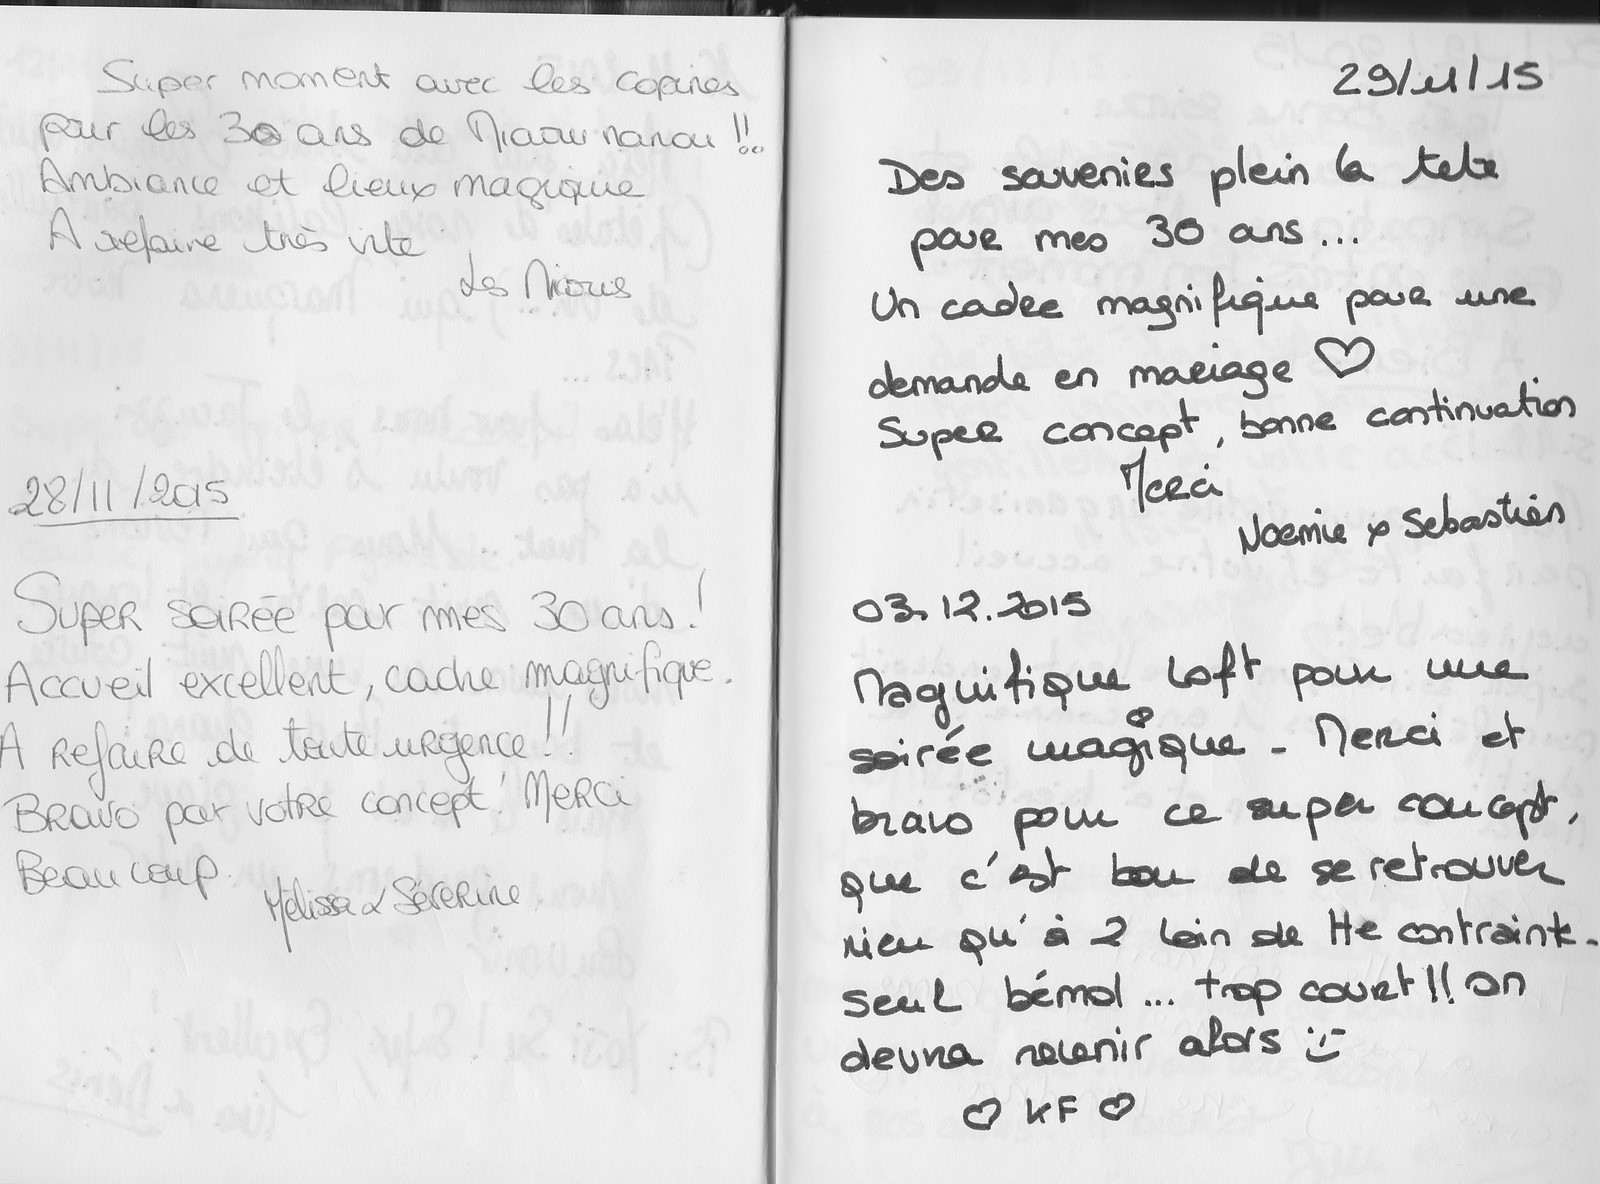 Super moment avec les copines
pour les 30 ans de Miaou nanou !!..
Ambiance et lieux magique
A refaire très vite
Les Miaous
28/11/2015
Super soirée par mes 30 ans !
Accueil excellent, cadre magnifique.
A refaire de toute urgence !!
Bravo par votre concept ! Merci
Beaucoup.
Mélissa & Séverine
29/11/15
Des souvenirs plein la tete
pour mes 30 ans...
Un cadre magnifique pour une
demande en mariage ♡
Super concept, bonne continuation
Merci
Noemie x Sebastien
03.12.2015
Magnifique Loft pour une
soirée magique - Merci et
bravo pour ce super concept,
que c'est bon de se retrouver
rien qu'à 2 loin de tte contrainte.
seul bémol... trop court !! on
devra revenir alors :-)
♡ KF ♡